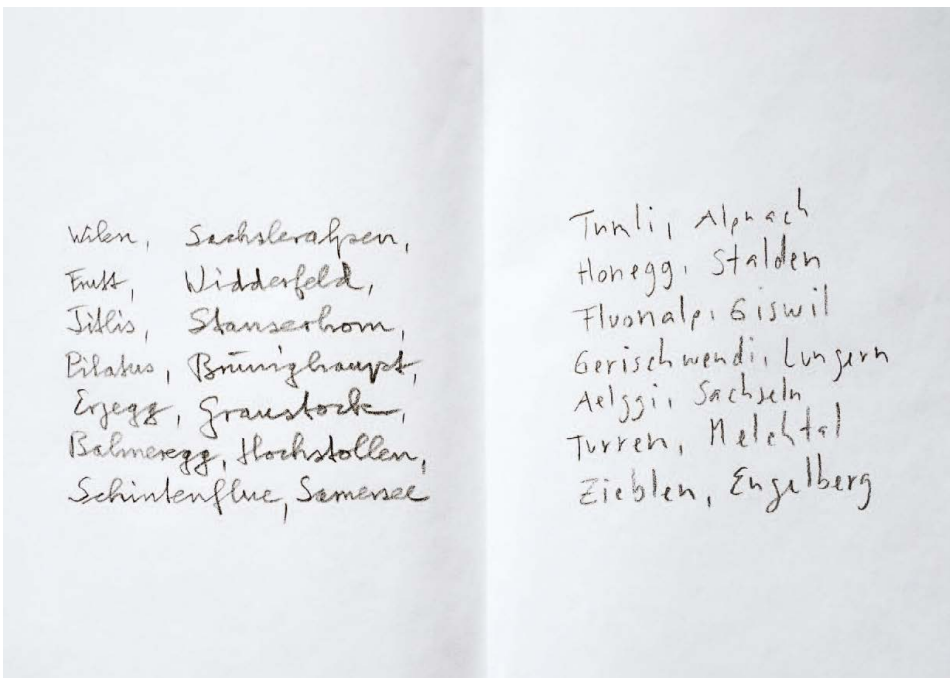 Wilen, Sachsleralpen,
Frutt, Widderfeld,
Titlis, Stanserhorn,
Pilatus, Brünighaupt,
Erzegg, Graustock,
Balmeregg, Hochstollen,
Schintenflue, Sarnersee
Tumli, Alpnach
Honegg, Stalden
Fluonalp, Giswil
Gerischwendi, Lungern
Aelggi, Sachseln
Turren, Melchtal
Zieblen, Engelberg